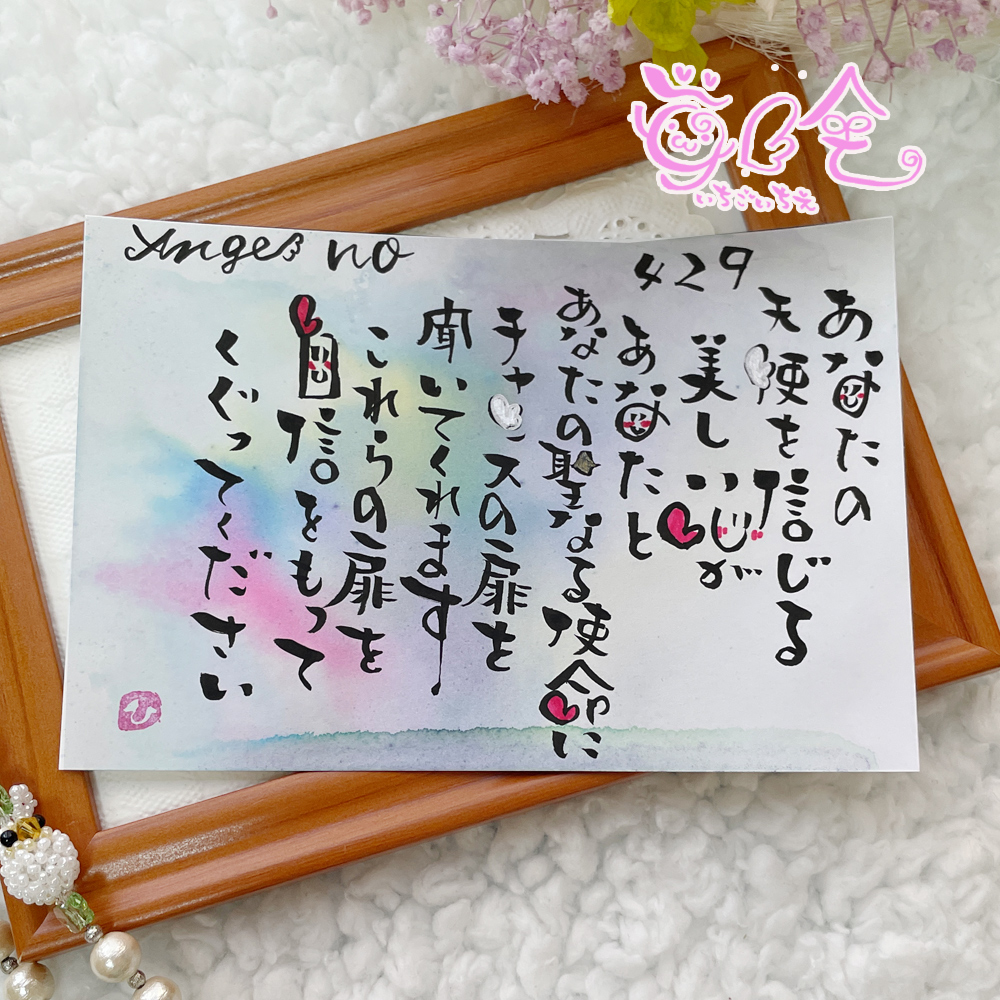 Angel no 429
あなたの
天使を信じる
美しい心が
あなたと
あなたの聖なる使命に
チャンスの扉を
聞いてくれます
これらの扉を
自信をもって
くぐってください
いちごいちえ